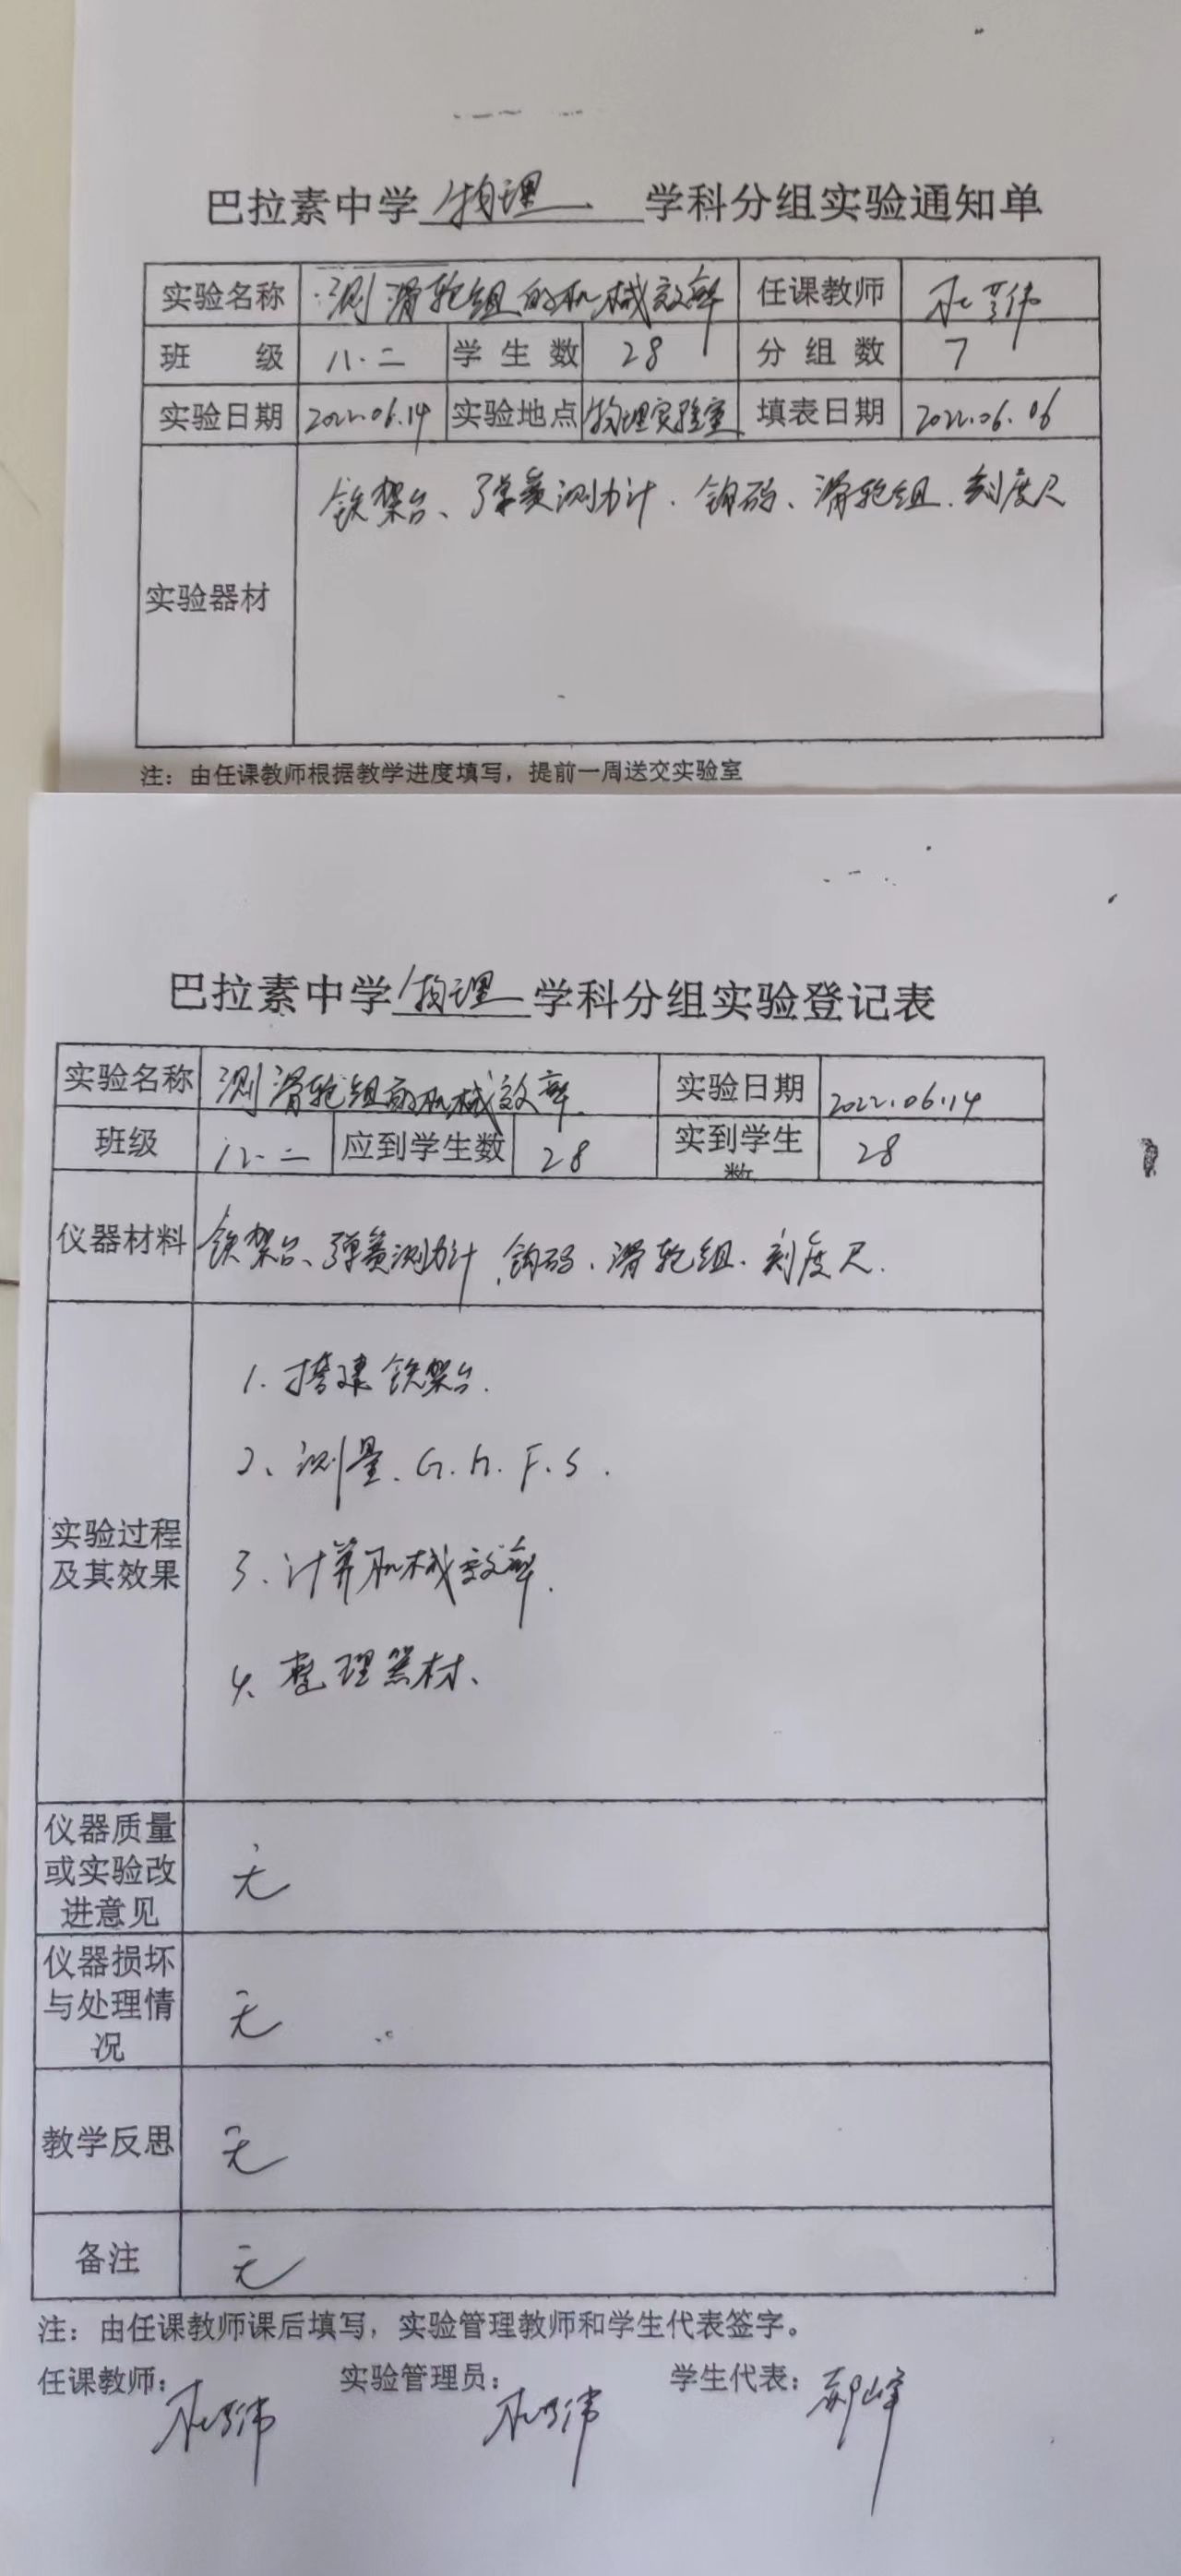 巴拉素中学 物理 学科分组实验通知单
实验名称 测滑轮组的机械效率 任课教师 杜
班 级 八.二 学生数 28 分组数 7
实验日期 2022.06.14 实验地点 物理实验室 填表日期 2022.06.06
铁架台、弹簧测力计、钩码、滑轮组、刻度尺
实验器材
注：由任课教师根据教学进度填写，提前一周送交实验室
巴拉素中学 物理 学科分组实验登记表
实验名称 测滑轮组的机械效率 实验日期 2022.06.14
班级 八.二 应到学生数 28 实到学生数 28
仪器材料 铁架台、弹簧测力计、钩码、滑轮组、刻度尺.
1. 搭建铁架台.
2、测量、G.h.F.S.
实验过程
及其效果
3、计算机械效率.
4、整理器材、
仪器质量
或实验改
进意见
无
仪器损坏
与处理情
况
无
教学反思 无
备注 无
注：由任课教师课后填写，实验管理教师和学生代表签字。
任课教师： 杜 实验管理员： 杜 学生代表： 峰